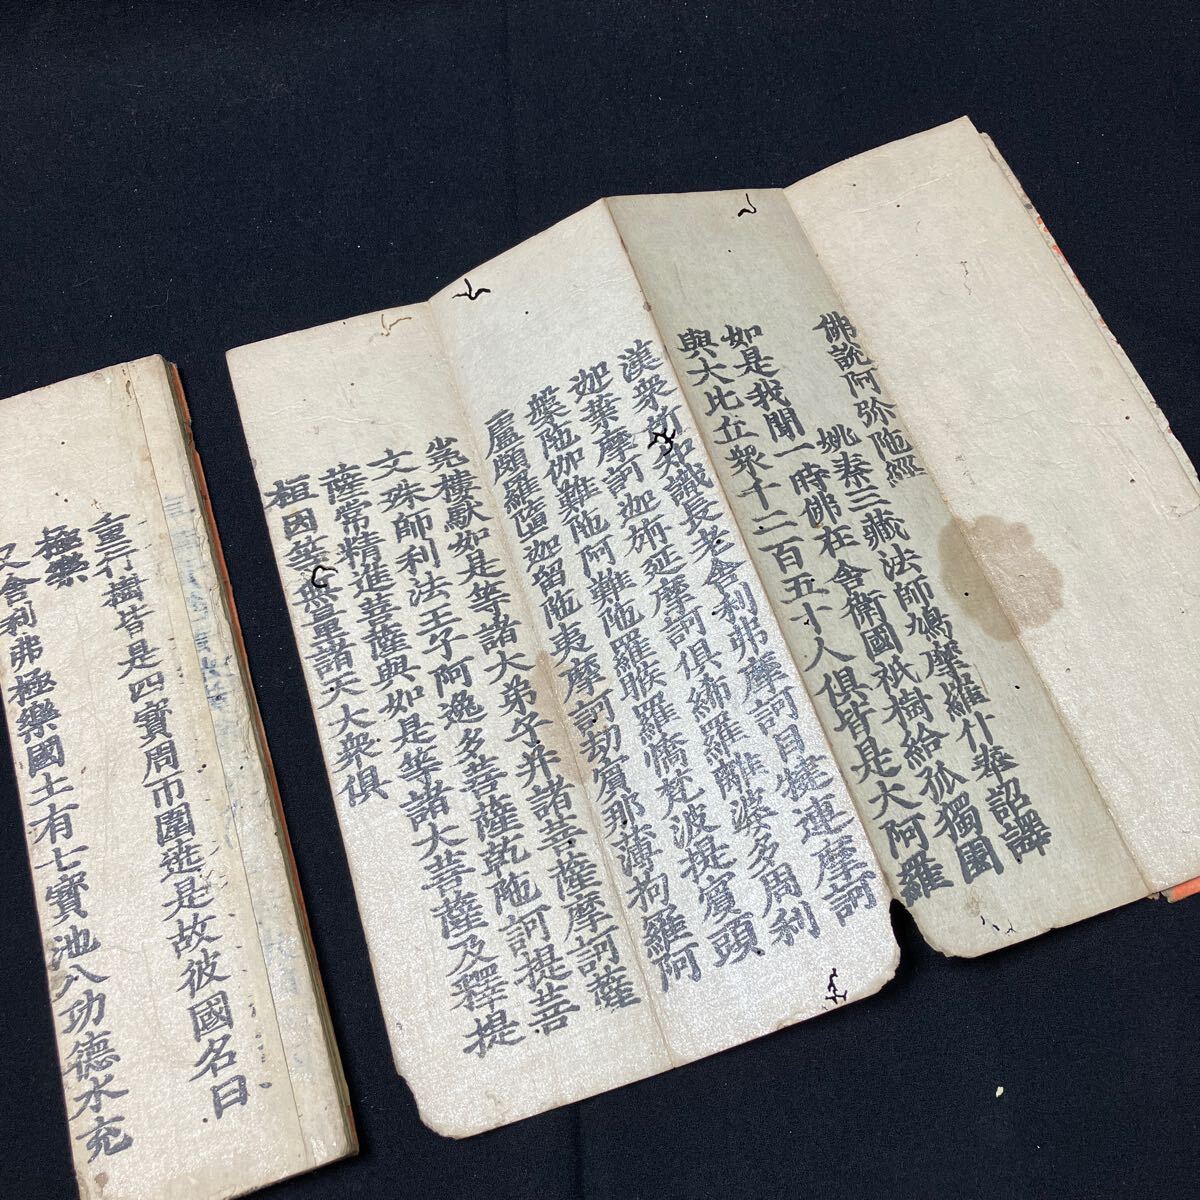 佛說阿弥陁經
姚秦三藏法師鳩摩羅什奉詔譯
如是我聞一時佛在舍衛國祇樹給孤獨園
與大比丘眾千二百五十人俱皆是大阿羅
漢眾所知識長老舍利弗摩訶目揵連摩訶
迦葉摩訶迦旃延摩訶俱絺羅離婆多周利
槃陁伽難陁阿難陁羅睺羅憍梵波提賓頭
盧頗羅墮迦留陁夷摩訶劫賓那薄拘羅阿
㝹樓䭾如是等諸大弟子并諸菩薩摩訶薩
文殊師利法王子阿逸多菩薩乾陁訶提菩
薩常精進菩薩與如是等諸大菩薩及釋提
桓因等無量諸天大眾俱
重行樹皆是四寶周帀圍遶是故彼國名曰
極樂
又舍利弗極樂國土有七寶池八功德水充